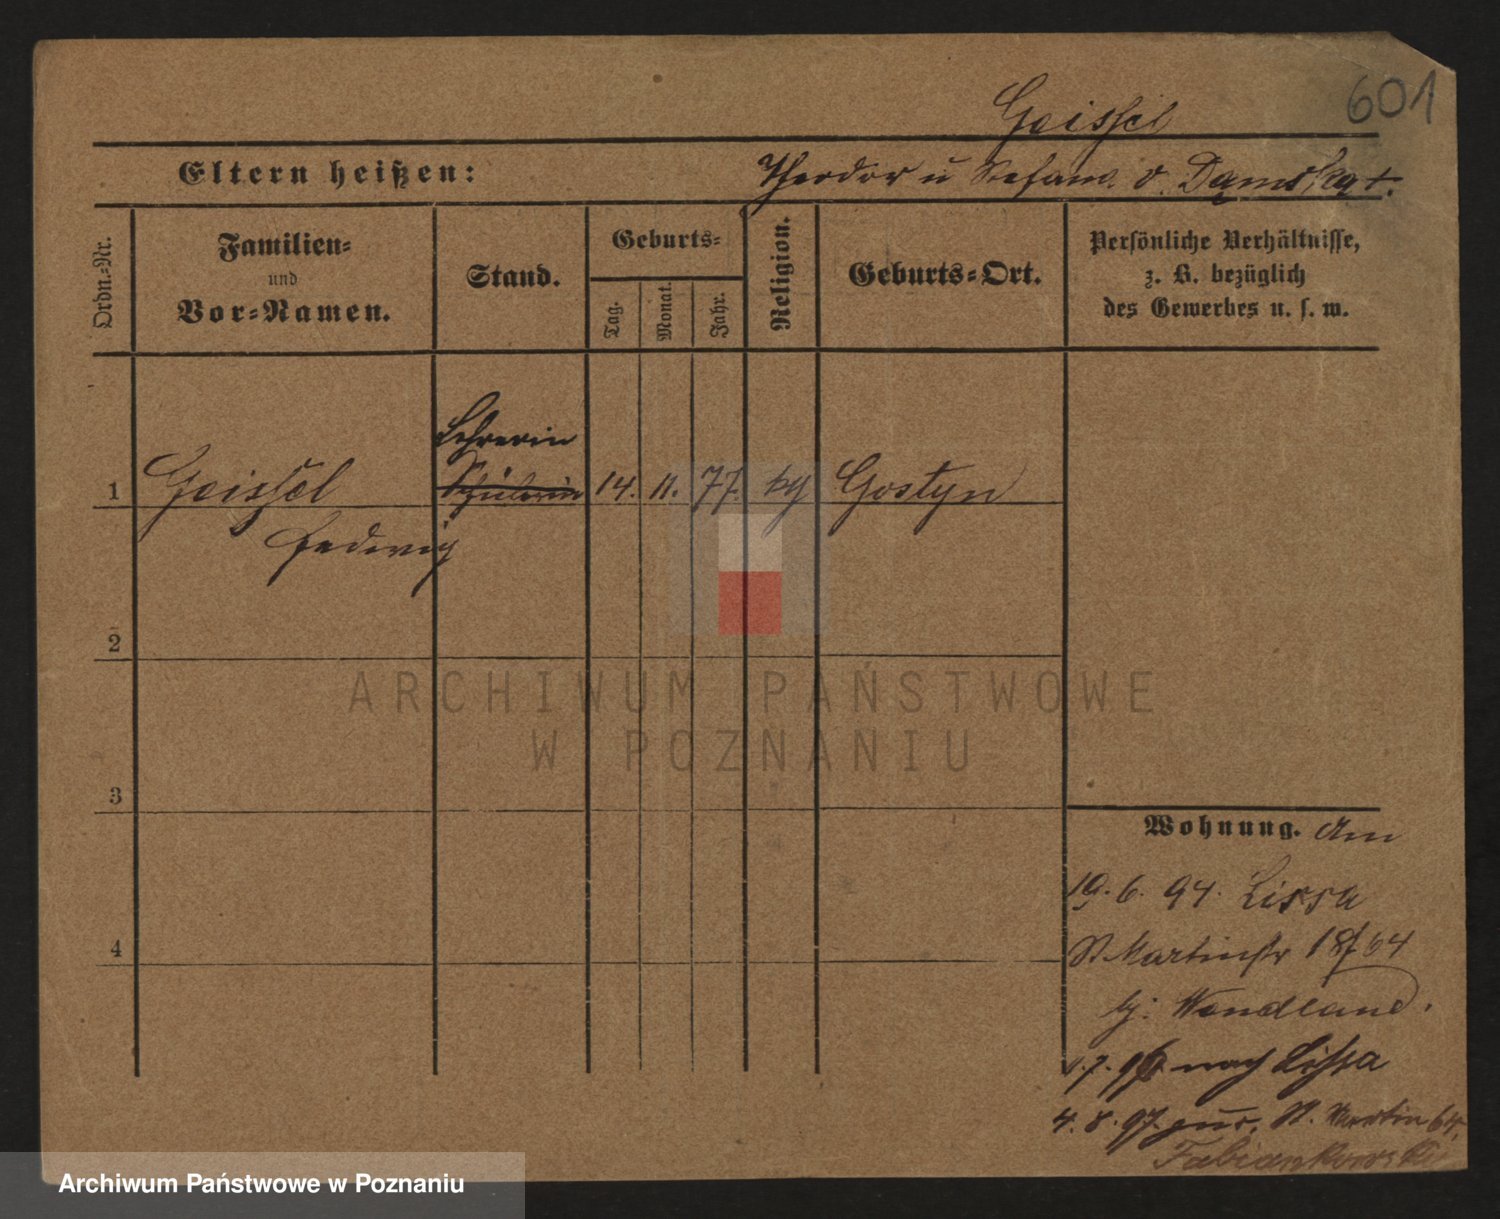 601
Geissel
Eltern heißen: Theodor u Stefania v. Dąmska t.
Ordn.-Nr.
Familien-
und
Vor-Namen.
Stand.
Geburts-
Tag.
Monat.
Jahr.
Religion.
Geburts-Ort.
Persönliche Verhältnisse,
z. B. bezüglich
des Gewerbes u. s. w.
Lehrerin
1 Geissel Schülerin 14. 11. 77. kg Gostyn
Hedwig
2
ARCHIWUM PAŃSTWOWE
W POZNANIU
3
4
Wohnung. Am
19. 6. 94. Lissa
St Martinstr 64
bj: Wendland.
1.7.96 nach Lissa
4. 8. 97. zur. St. Martin 64.
Fabiankowski
Archiwum Państwowe w Poznaniu